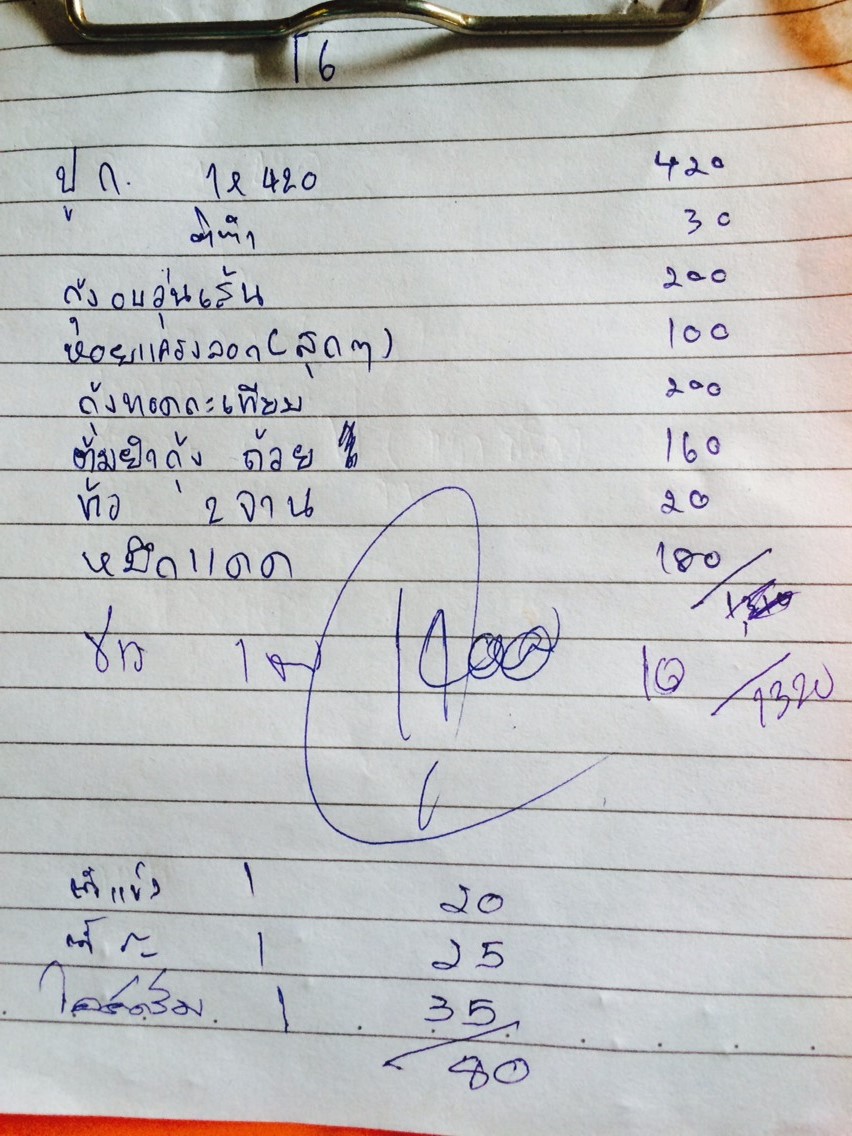 T 6
ปู ก. 1 x 420 420
ค่าทำ 30
กุ้งอบวุ้นเส้น 200
หอยแครงลวก (สุกๆ) 100
กุ้งทอดกะเทียม 200
ต้มยำกุ้ง ถ้วย 160
ข้าว 2 จาน 20
หมึกแดด 180
1 10 /1320
1400
น้ำแข็ง 1 20
1 25
ไอศครีม 1 35
/80